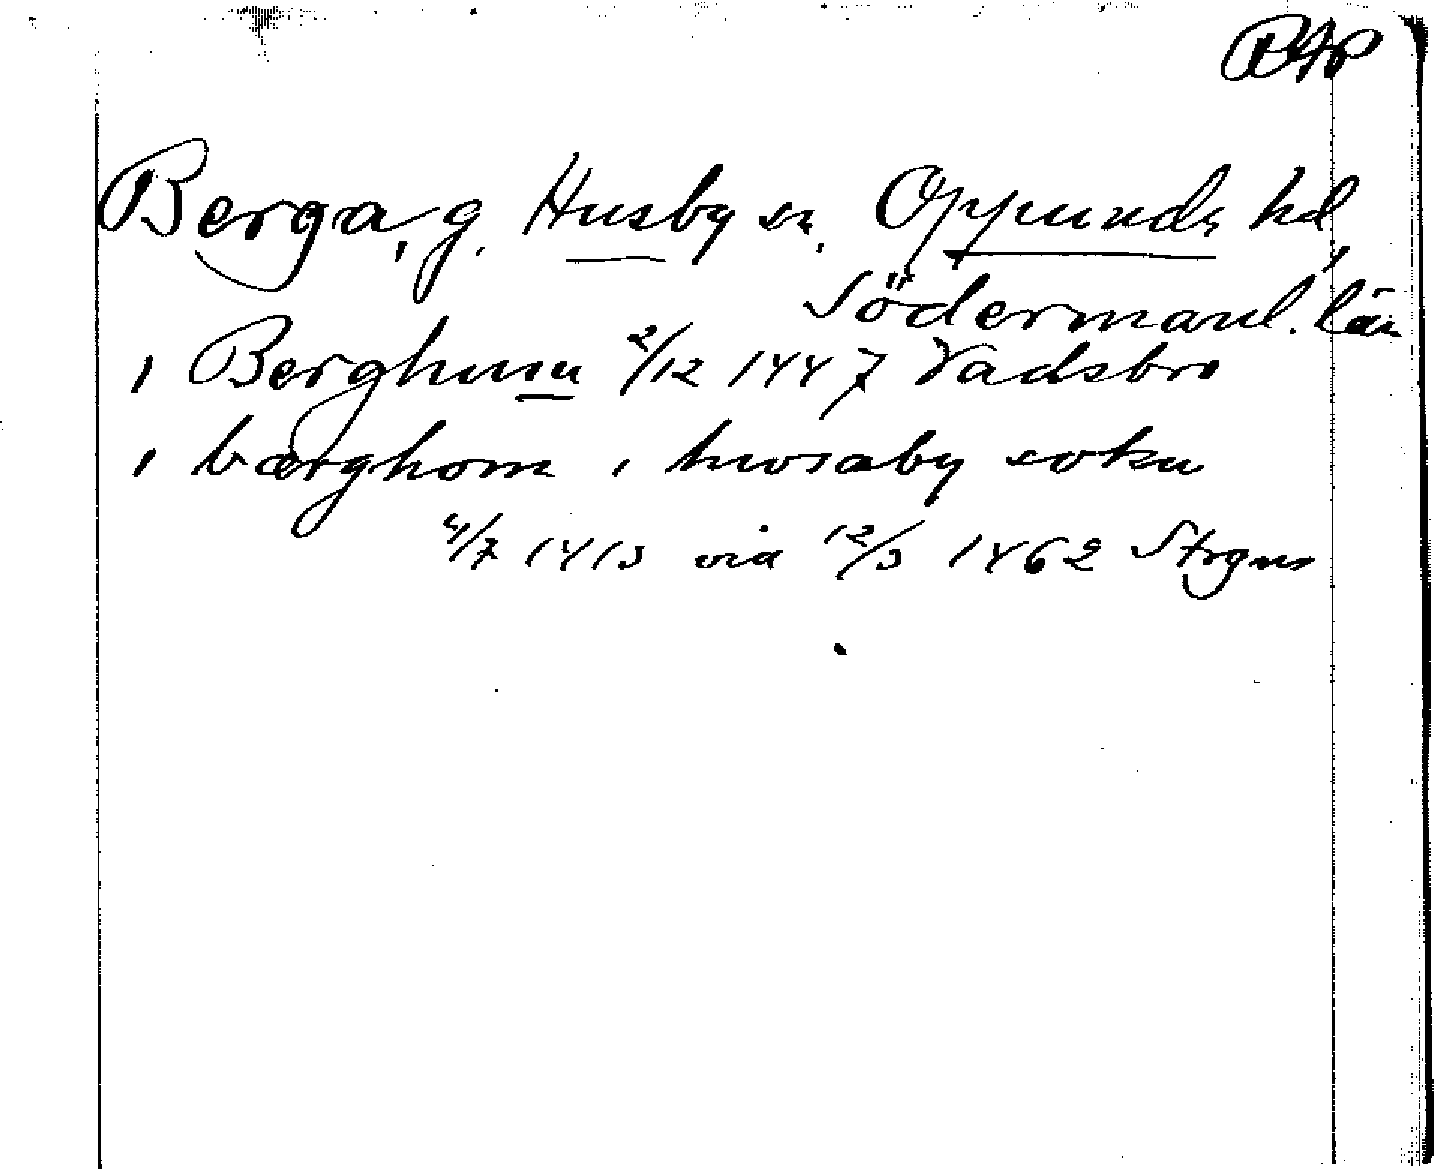 Berga, g. Husby sn, Oppunda hd,
Södermanl. län
i Berghum 2/12 1447 Vadsbro
i bærghom i hwsaby sokn
4/7 1413 vid 12/3 1462 Strgns